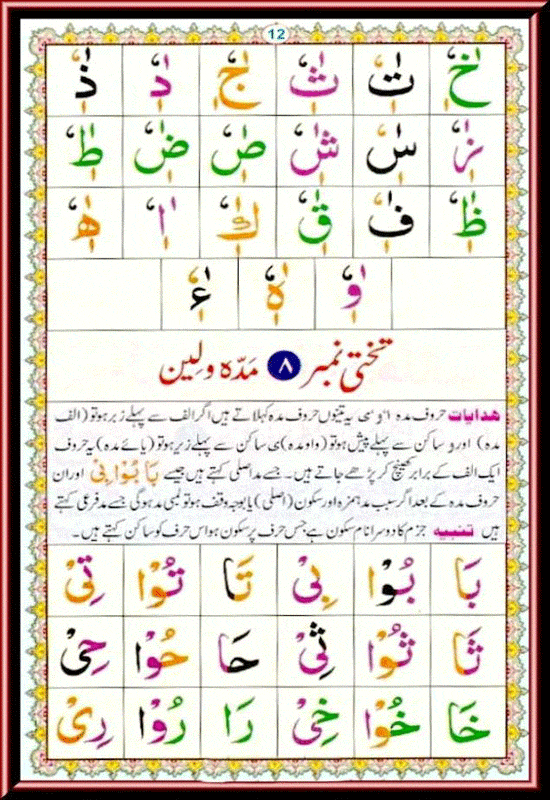 12
خٰٖٗ تٰٖٗ ثٰٖٗ جٰٖٗ دٰٖٗ ذٰٖٗ
زٰٖٗ سٰٖٗ شٰٖٗ صٰٖٗ ضٰٖٗ طٰٖٗ
ظٰٖٗ فٰٖٗ قٰٖٗ كٰٖٗ اٰٖٗ هٰٖٗ
وٰٖٗ ہٰٖٗ ءٰٖٗ
تختی نمبر ۸ مَدّہ و لِین
ھدایات حروف مدہ ا و ی یہ تینوں حروف مدہ کہلاتے ہیں اگر الف سے پہلے زبر ہو تو (الف
مدہ) اور و ساکن سے پہلے پیش ہو تو (واو مدہ) ی ساکن سے پہلے زیر ہو تو (یائے مدہ) یہ حروف
ایک الف کے برابر کھینچ کر پڑھے جاتے ہیں۔ جسے مد اصلی کہتے ہیں جیسے بَا بُوْا بِیْ اور ان
حروف مدہ کے بعد اگر سبب مد ہمزہ اور سکون (اصلی) یا بوجہ وقف ہو تو لمبی مد ہوگی جسے مد فرعی کہتے
ہیں تنبیہ جزم کا دوسرا نام سکون ہے جس حرف پر سکون ہو اس حرف کو ساکن کہتے ہیں۔
بَا بُوْا بِیْ تَا تُوْا تِیْ
ثَا ثُوْا ثِیْ حَا حُوْا حِیْ
خَا خُوْا خِیْ رَا رُوْا رِیْ